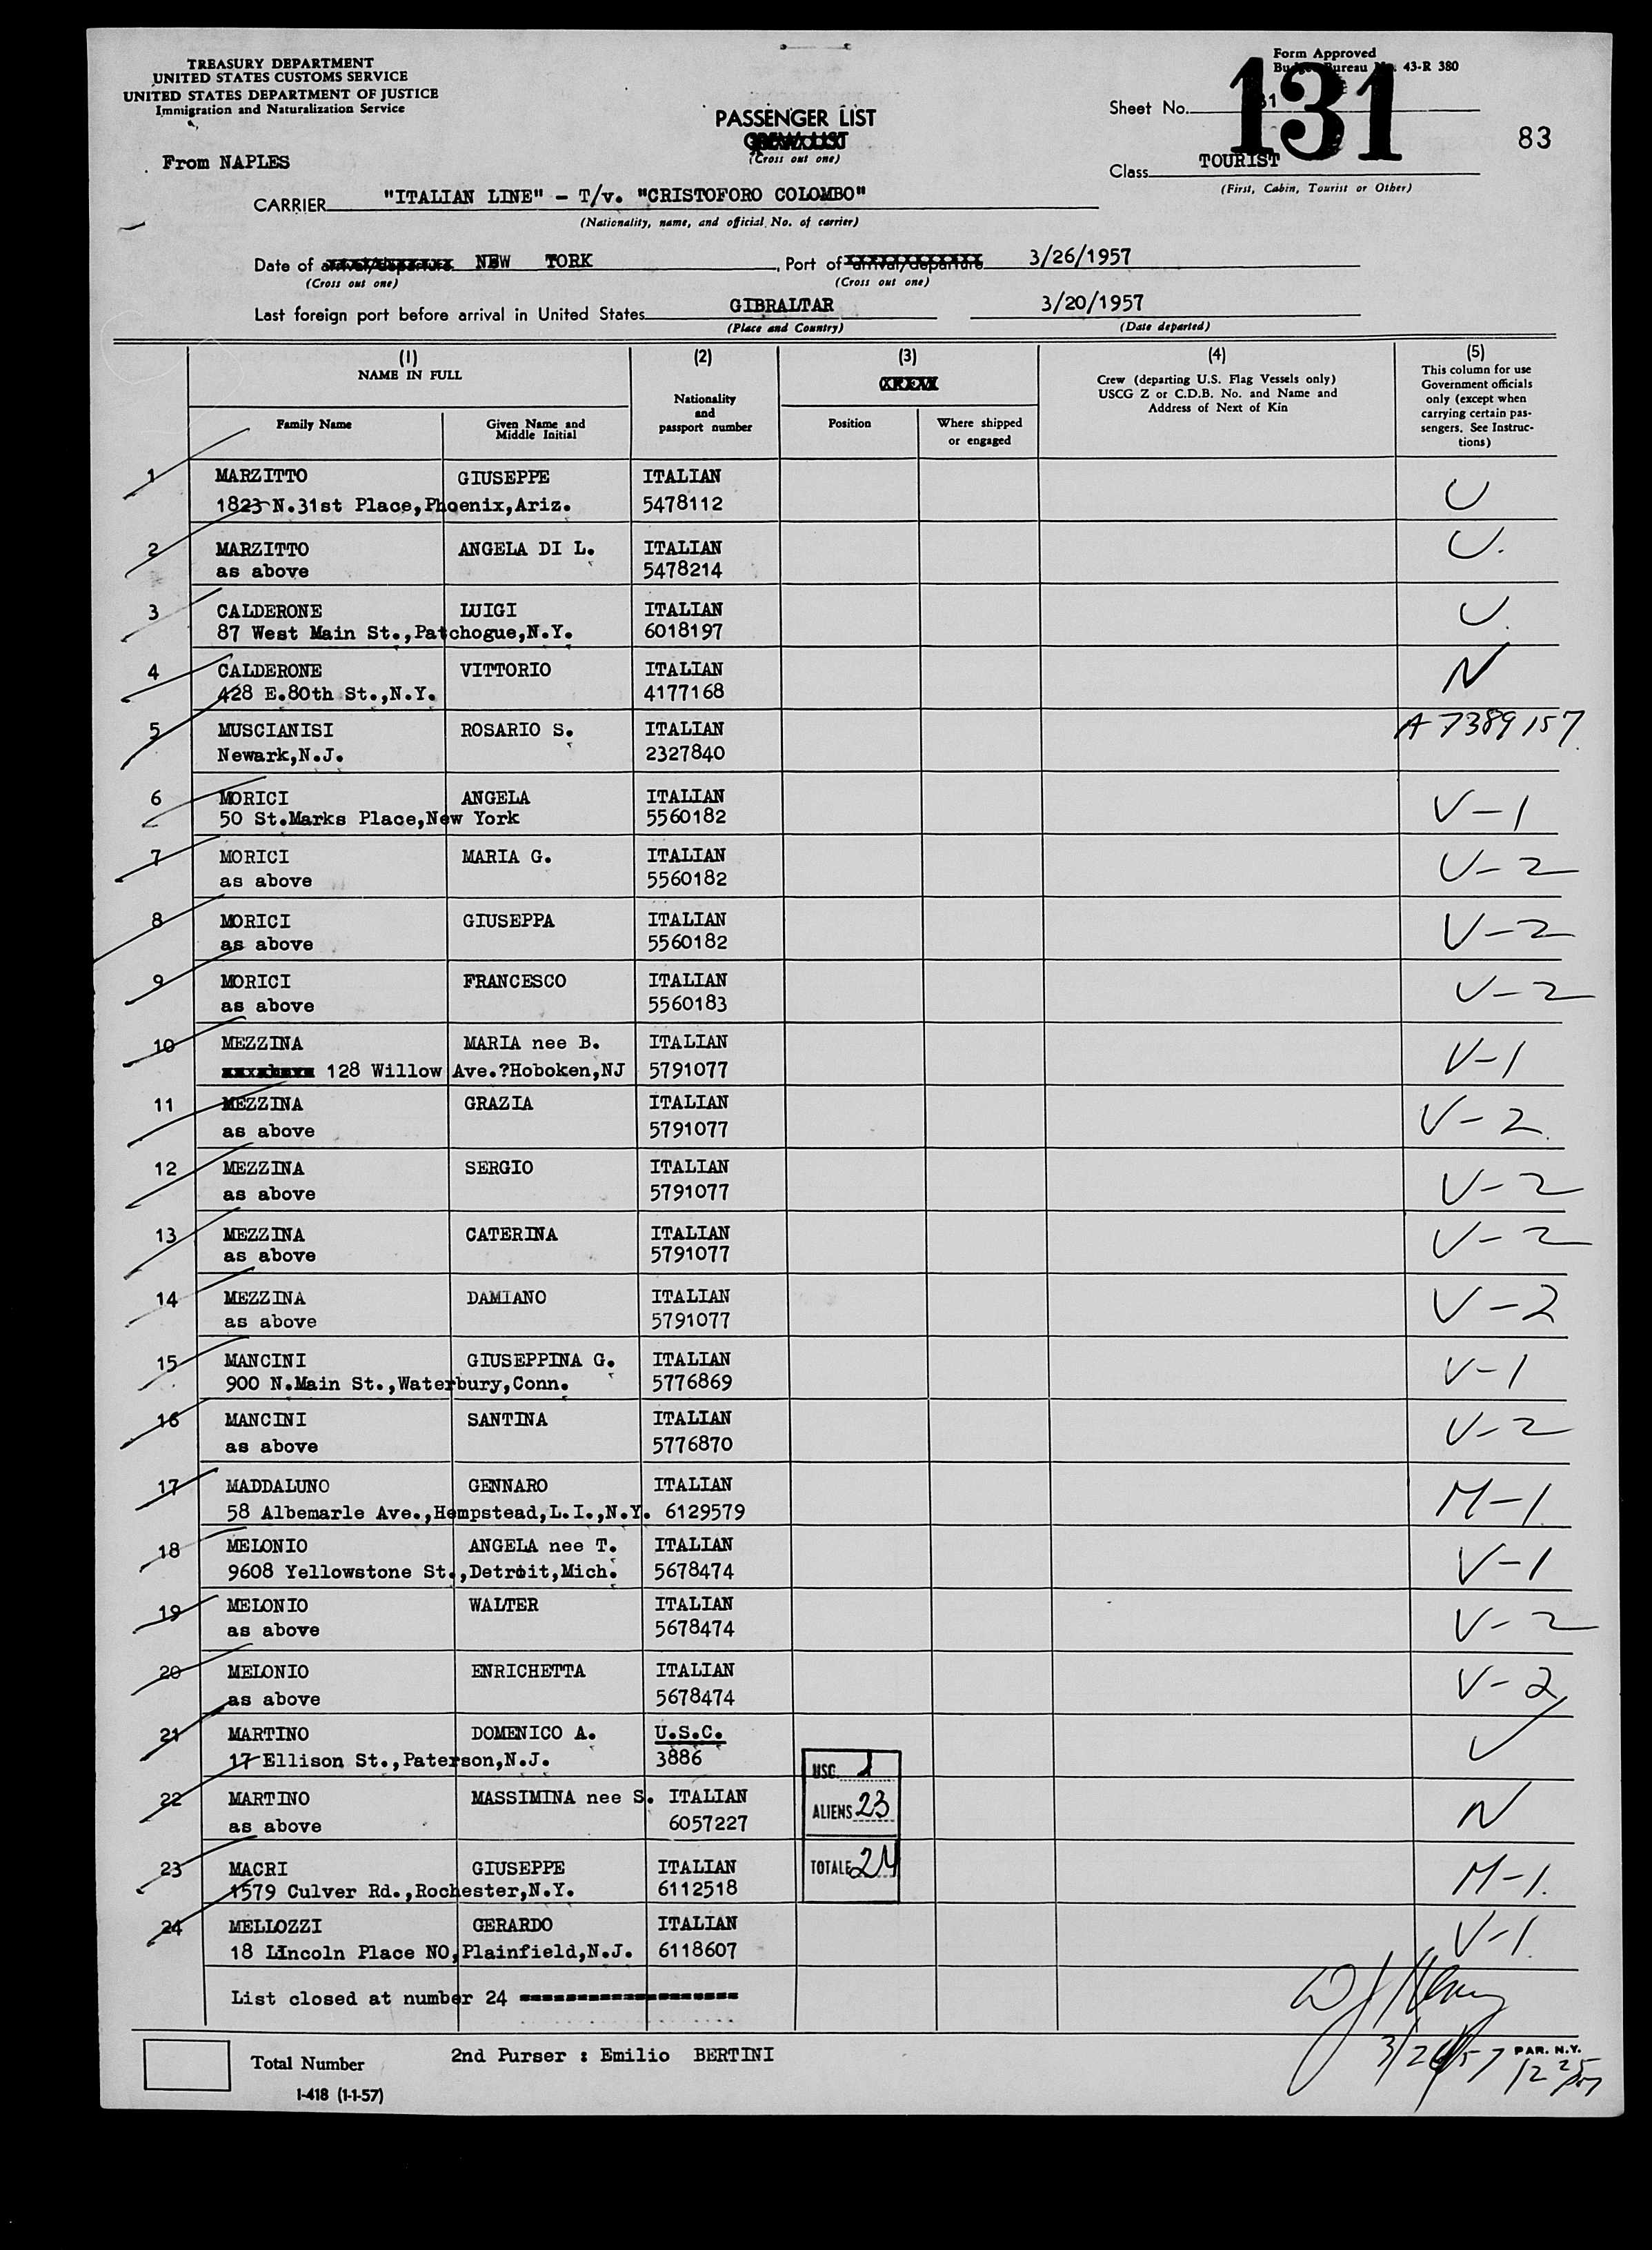 TREASURY DEPARTMENT
UNITED STATES CUSTOMS SERVICE
UNITED STATES DEPARTMENT OF JUSTICE
Immigration and Naturalization Service
From NAPLES
PASSENGER LIST
(Cross out one)
Form Approved
Budget Bureau No. 43-R 380
Sheet No. 131
83
Class TOURIST
(First, Cabin, Tourist or Other)
CARRIER "ITALIAN LINE" - T/v. "CRISTOFORO COLOMBO"
(Nationality, name, and official No. of carrier)
Date of arrival/departure NEW TORK, Port of arrival/departure 3/26/1957
(Cross out one) (Cross out one)
Last foreign port before arrival in United States GIBRALTAR 3/20/1957
(Place and Country) (Date departed)
(1) NAME IN FULL
Family Name
Given Name and Middle Initial
(2)
Nationality and passport number
(3)
CREW
Position
Where shipped or engaged
(4)
Crew (departing U.S. Flag Vessels only)
USCG Z or C.D.B. No. and Name and
Address of Next of Kin
(5)
This column for use
Government officials
only (except when
carrying certain pas-
sengers. See Instruc-
tions)
1 MARZITTO GIUSEPPE ITALIAN U
1823 N.31st Place,Phoenix,Ariz. 5478112
2 MARZITTO ANGELA DI L. ITALIAN U.
as above 5478214
3 CALDERONE LUIGI ITALIAN U.
87 West Main St.,Patchogue,N.Y. 6018197
4 CALDERONE VITTORIO ITALIAN N
428 E.80th St.,N.Y. 4177168
5 MUSCIANISI ROSARIO S. ITALIAN A 7389157
Newark,N.J. 2327840
6 MORICI ANGELA ITALIAN V-1
50 St.Marks Place,New York 5560182
7 MORICI MARIA G. ITALIAN V-2
as above 5560182
8 MORICI GIUSEPPA ITALIAN V-2
as above 5560182
9 MORICI FRANCESCO ITALIAN V-2
as above 5560183
10 MEZZINA MARIA nee B. ITALIAN V-1
128 Willow Ave.?Hoboken,NJ 5791077
11 MEZZINA GRAZIA ITALIAN V-2
as above 5791077
12 MEZZINA SERGIO ITALIAN V-2
as above 5791077
13 MEZZINA CATERINA ITALIAN V-2
as above 5791077
14 MEZZINA DAMIANO ITALIAN V-2
as above 5791077
15 MANCINI GIUSEPPINA G. ITALIAN V-1
900 N.Main St.,Waterbury,Conn. 5776869
16 MANCINI SANTINA ITALIAN V-2
as above 5776870
17 MADDALUNO GENNARO ITALIAN M-1
58 Albemarle Ave.,Hempstead,L.I.,N.Y. 6129579
18 MELONIO ANGELA nee T. ITALIAN V-1
9608 Yellowstone St.,Detroit,Mich. 5678474
19 MELONIO WALTER ITALIAN V-2
as above 5678474
20 MELONIO ENRICHETTA ITALIAN V-2
as above 5678474
21 MARTINO DOMENICO A. U.S.C.
17 Ellison St.,Paterson,N.J. 3886
USC 1
22 MARTINO MASSIMINA nee S. ITALIAN N
ALIENS 23
as above 6057227
23 MACRI GIUSEPPE ITALIAN M-1.
TOTALE 24
1579 Culver Rd.,Rochester,N.Y. 6112518
24 MELLOZZI GERARDO ITALIAN V-1
18 LIncoln Place NO,Plainfield,N.J. 6118607
List closed at number 24
Total Number
2nd Purser : Emilio BERTINI
3/26/57
PAR. N.Y.
I-418 (1-1-57)